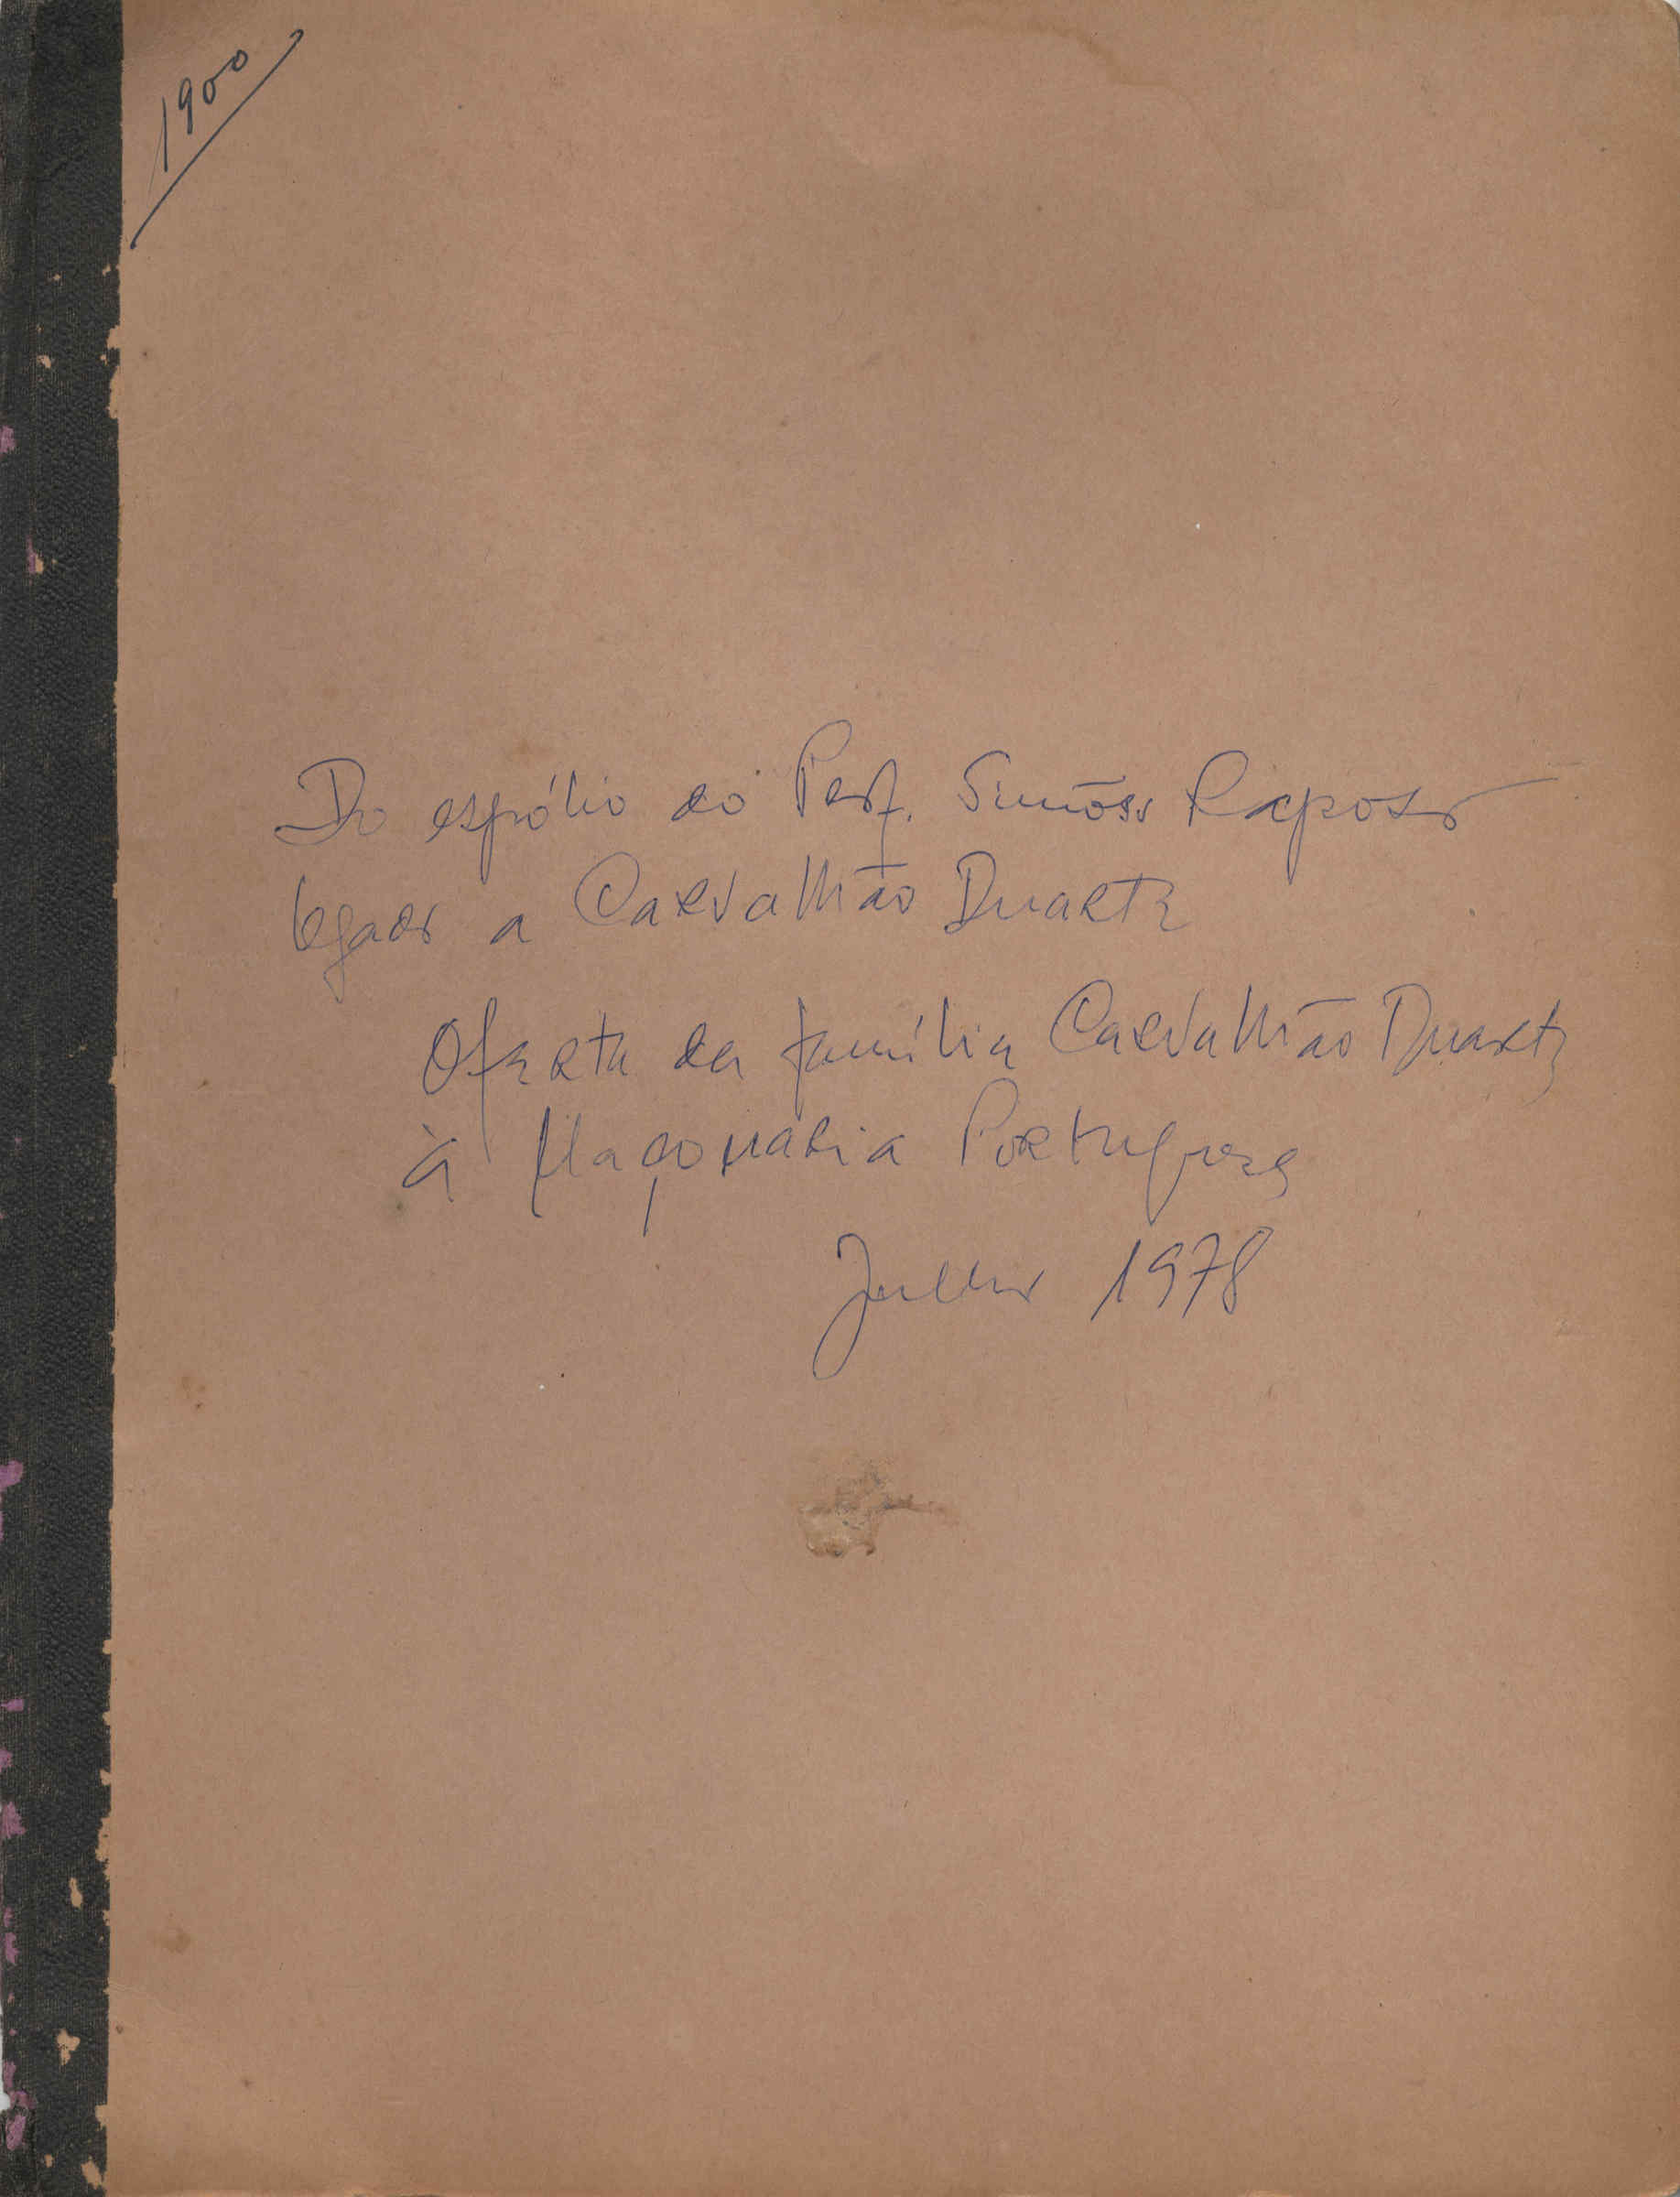 1900
Do espólio do Prof. Simões Raposo
legado a Carvalhão Duarte
Oferta da família Carvalhão Duarte
à Maçonaria Portuguesa
Julho 1978